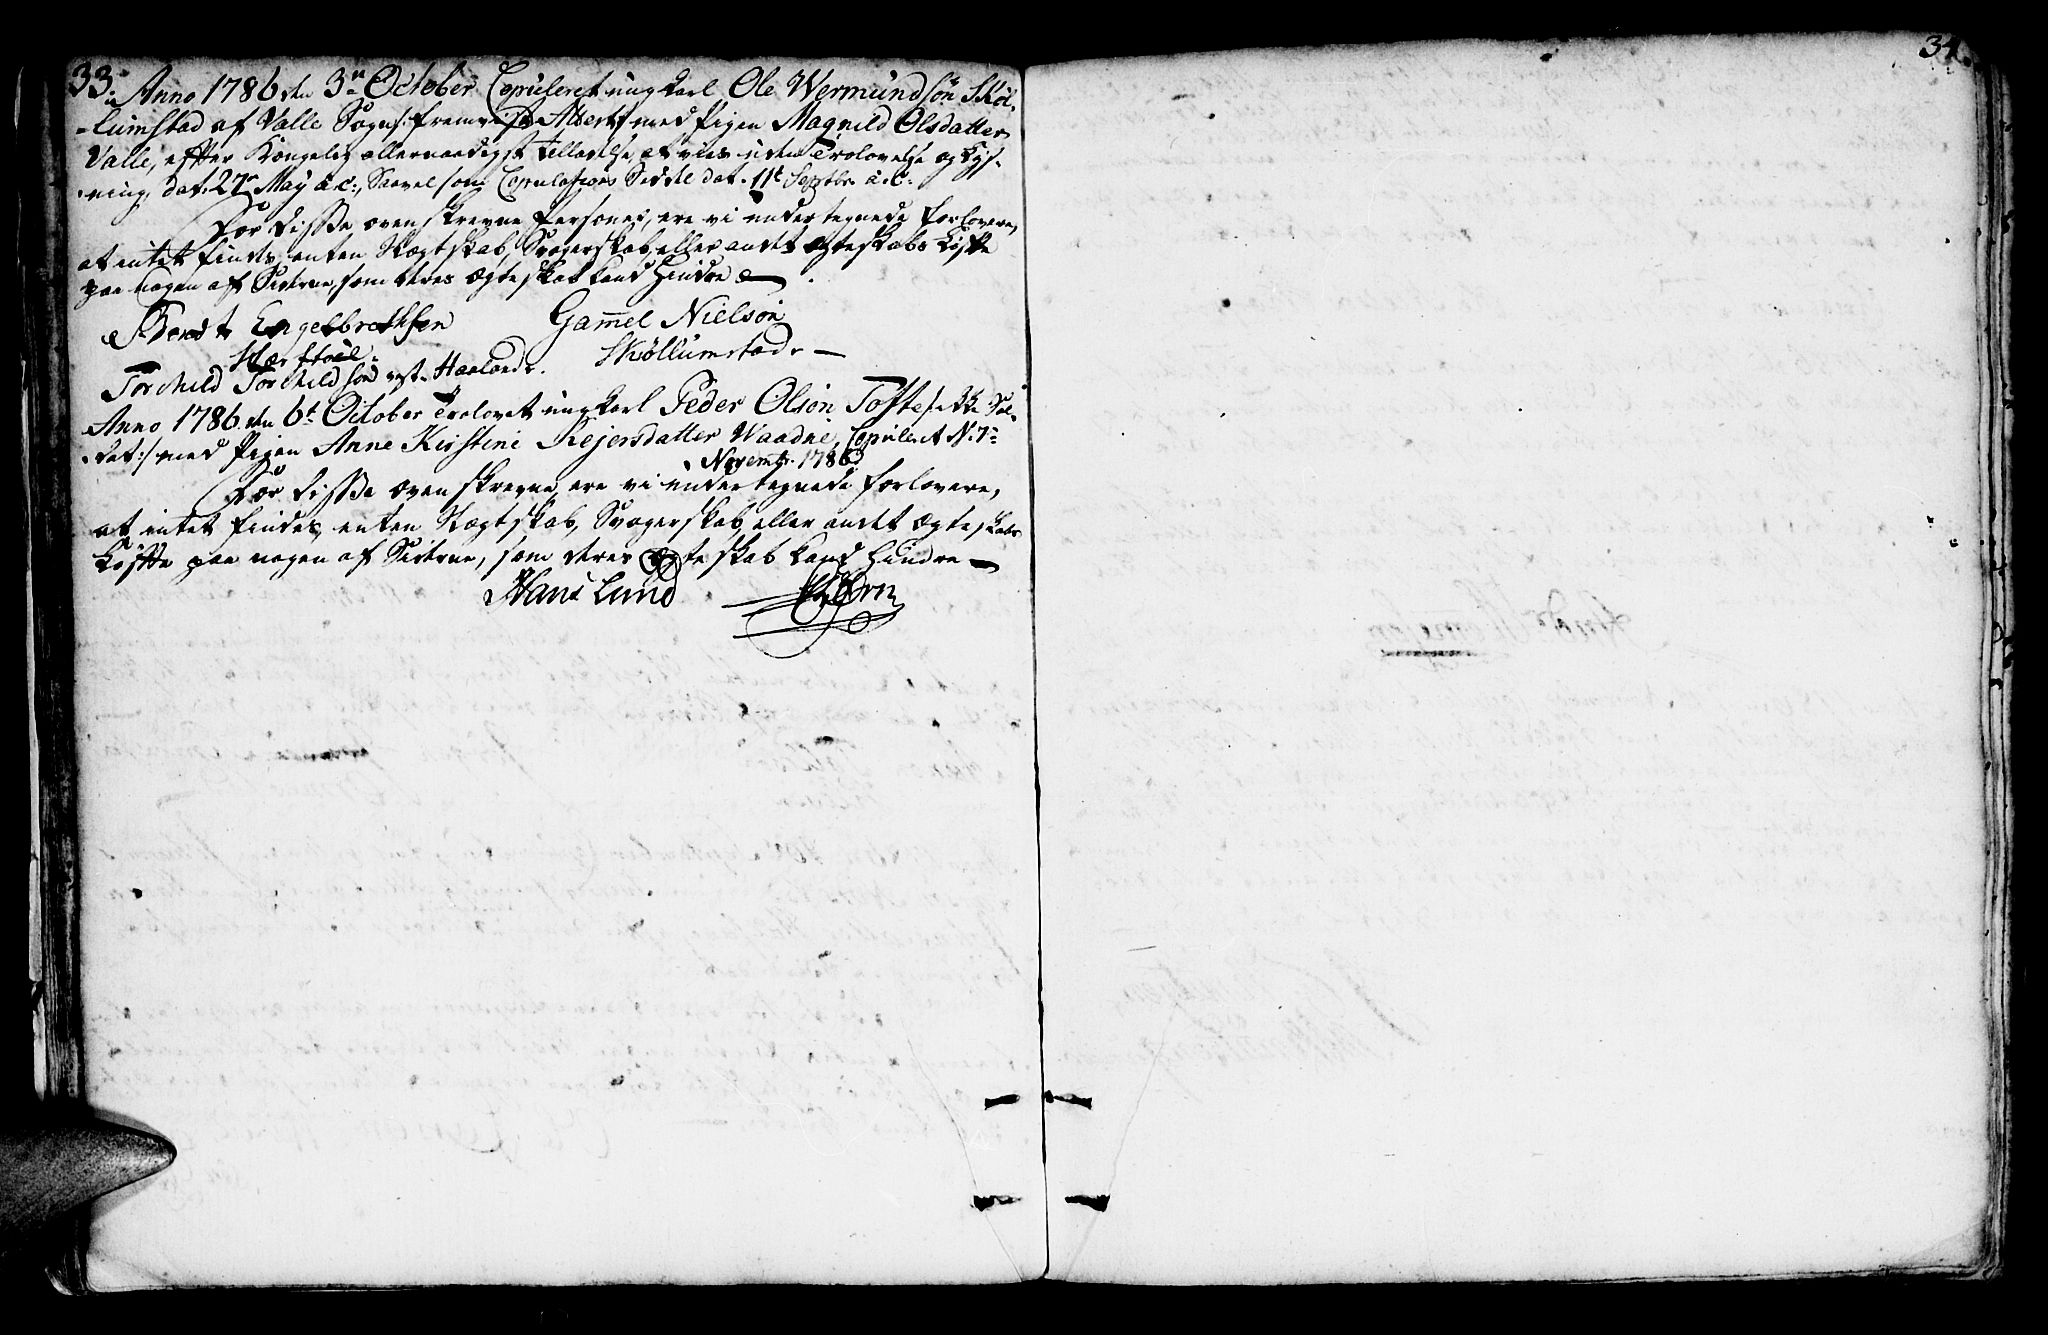 33.
Anno 1786 den 3n October Copuleret ung karl Ole Wermundsön Sköl-
-lumstad af Valle Sogn /: fremviiste Attest :/ med Pigen Magnild Olsdatter
Valle, efter Kongelig allernaadigst Tilladelse, at vies uden Trolovelse og Lys-
-ning, dat. 27n May a.c:, Saavelsom Copulations Seddel dat. 11t Septbr. a.c:
For disse ovenskrevne Personer, ere vi undertegnede forlovere,
at intet findes, enten Slægtskab, Svogerskab, eller andet ægteskabs Løfte
paa nogen af Siderne, som deres ægteskab kand hindre
Berndt Engelbrethsen Gammel Nielsön
Skøllumstad.
Torchild Torchildsön vest. Haaland.
Anno 1786. den 6t October Trolovet ung karl Peder Olsön Tofte /: ikke Sol-
-dat :/ med Pigen Anne Kirstine Rejersdatter Waadne, Copuleret N. 7n
Novembr. 1786
For disse ovenskrevne, ere vi undertegnede forlovere,
at intet findes, enten Slægtskab, Svogerskab, eller andet Ægteskabs
Løfte paa nogen af Siderne, som deres Ægteskab kand hindre
Hans Lund
34.